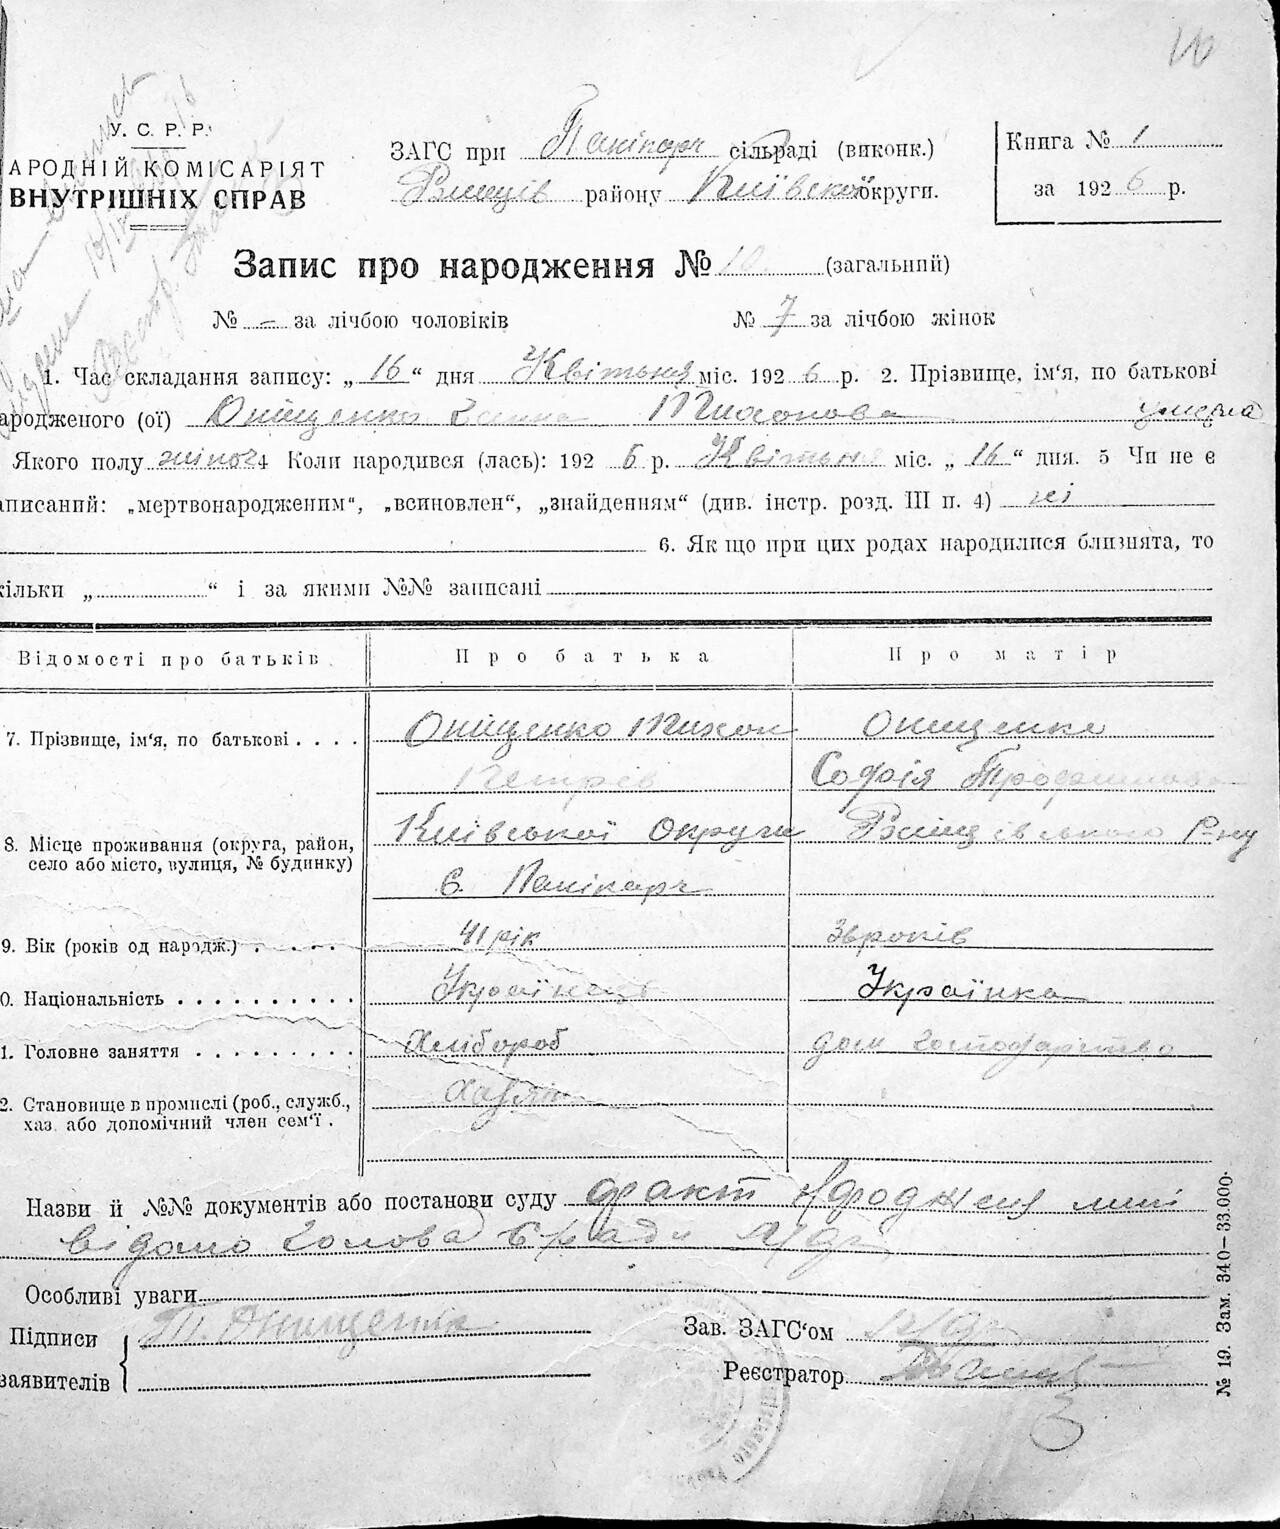 10
У. С. Р. Р.
АРОДНІЙ КОМІСАРІЯТ
ВНУТРІШНІХ СПРАВ
ЗАГС при Панікарч сільраді (виконк.)
Ржищів району Київської округи.
Книга № 1
за 1926 р.
Запис про народження № 10 (загальний)
№ – за лічбою чоловіків № 7 за лічбою жінок
1. Час складання запису: „16“ дня Квітьня міс. 1926 р. 2. Прізвище, ім'я, по батькові
ародженого (ої) Оніщенко Ганна Тихонова умерла
Якого полу жіноч 4 Коли народився (лась): 1926 р. Квітьня міс. „16“ дня. 5 Чи не є
аписаний: „мертвонародженим“, „всиновлен“, „знайденням“ (див. інстр. розд. III п. 4) ні
6. Як що при цих родах народилися близнята, то
кільки „ “ і за якими №№ записані
Відомості про батьків. Про батька Про матір
7. Прізвище, ім'я, по батькові . . . . Оніщенко Тихон Онищенко
Петрів Софія Трофимова
8. Місце проживання (округа, район, село або місто, вулиця, № будинку) Київської Округи Ржищівського Р-ну
С. Панікарч
9. Вік (років од народж.) . . . . . 41 рік 38 років
0. Національність . . . . . . . . . . Українець Українка
1. Головне заняття . . . . . . . . . Хлібороб дом господарство
2. Становище в промислі (роб., служб., хаз. або допомічний член сем'ї .
Назви й №№ документів або постанови суду факт народженя мині
відомо Голова С/ради
Особливі уваги
Підписи Т. Онищенко
заявителів
Зав. ЗАГС'ом
Реєстратор
№ 19. Зам. 340–33.000.